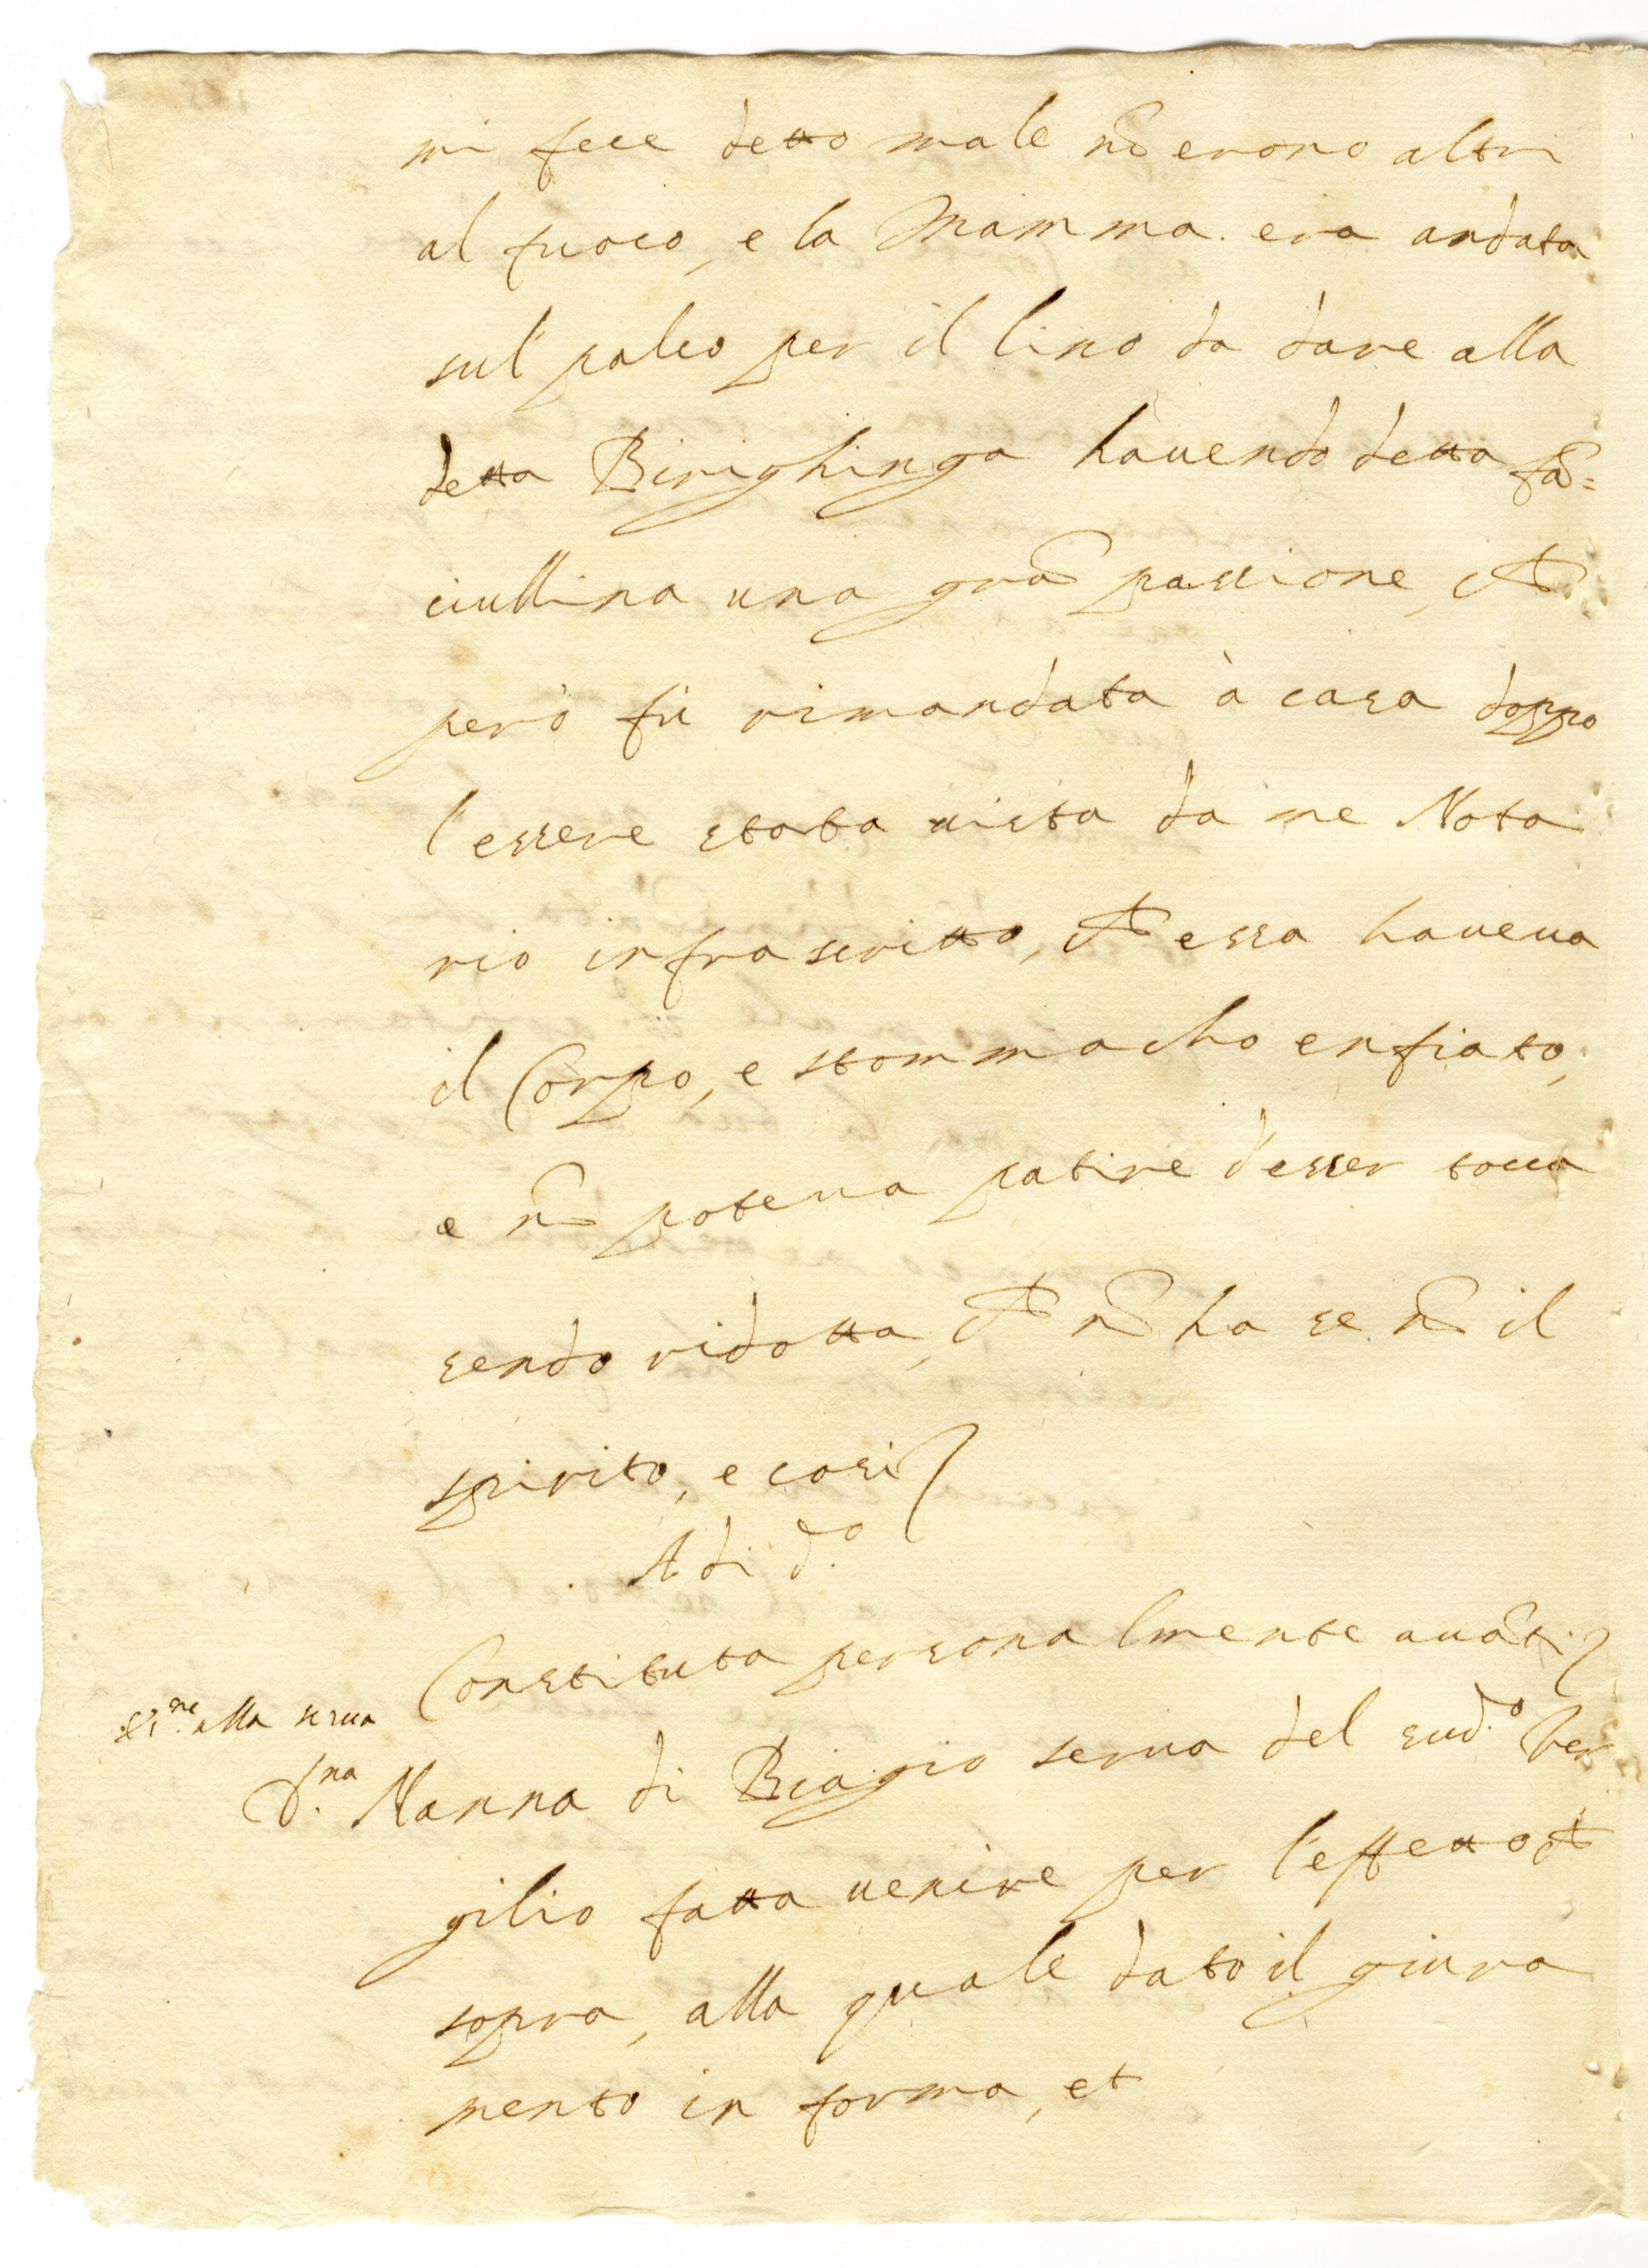 mi fece detto male nõ erono altri
al fuoco, e la Mamma era andata
sul palco per il lino da dare alla
detta Birighinga hauendo detta fã=
ciullina una grã passione, et
però fù rimandata à casa doppo
l'essere stata uista da me Nota
rio infrascritto, et essa haueua
il Corpo, e stommacho enfiato,
e nõ poteua patire d'esser tocca
sendo ridotta, et nõ ha se nõ il
spirito, e così
A dì d.º
Constituta personalmente auãti
alla serua
D.na Nanna di Biagio serua del sud.º Ver
gilio fatta uenire per l'effetto et
sopra, alla quale dato il giura
mento in forma, et